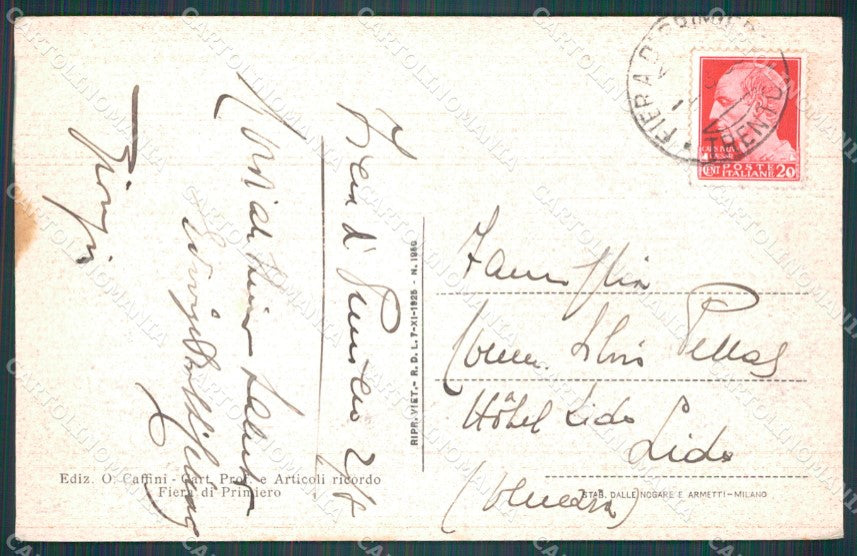 Fiera d' Primiero 2/8
Cordialissimi saluti
Giorgio
FIERA DI PRIMIERO
TRENTO
POSTE
ITALIANE
CENT 20
Famiglia
Comm. Silvio Pellas
Hôtel Lido
Lido
(Venezia)
RIPR. VIET.- R. D. L. 7-XI-1925 - N. 1950
Ediz. O. Caffini - Cart. Prof. e Articoli ricordo
Fiera di Primiero
STAB. DALLE NOGARE E ARMETTI-MILANO
CARTOLINOMANIA